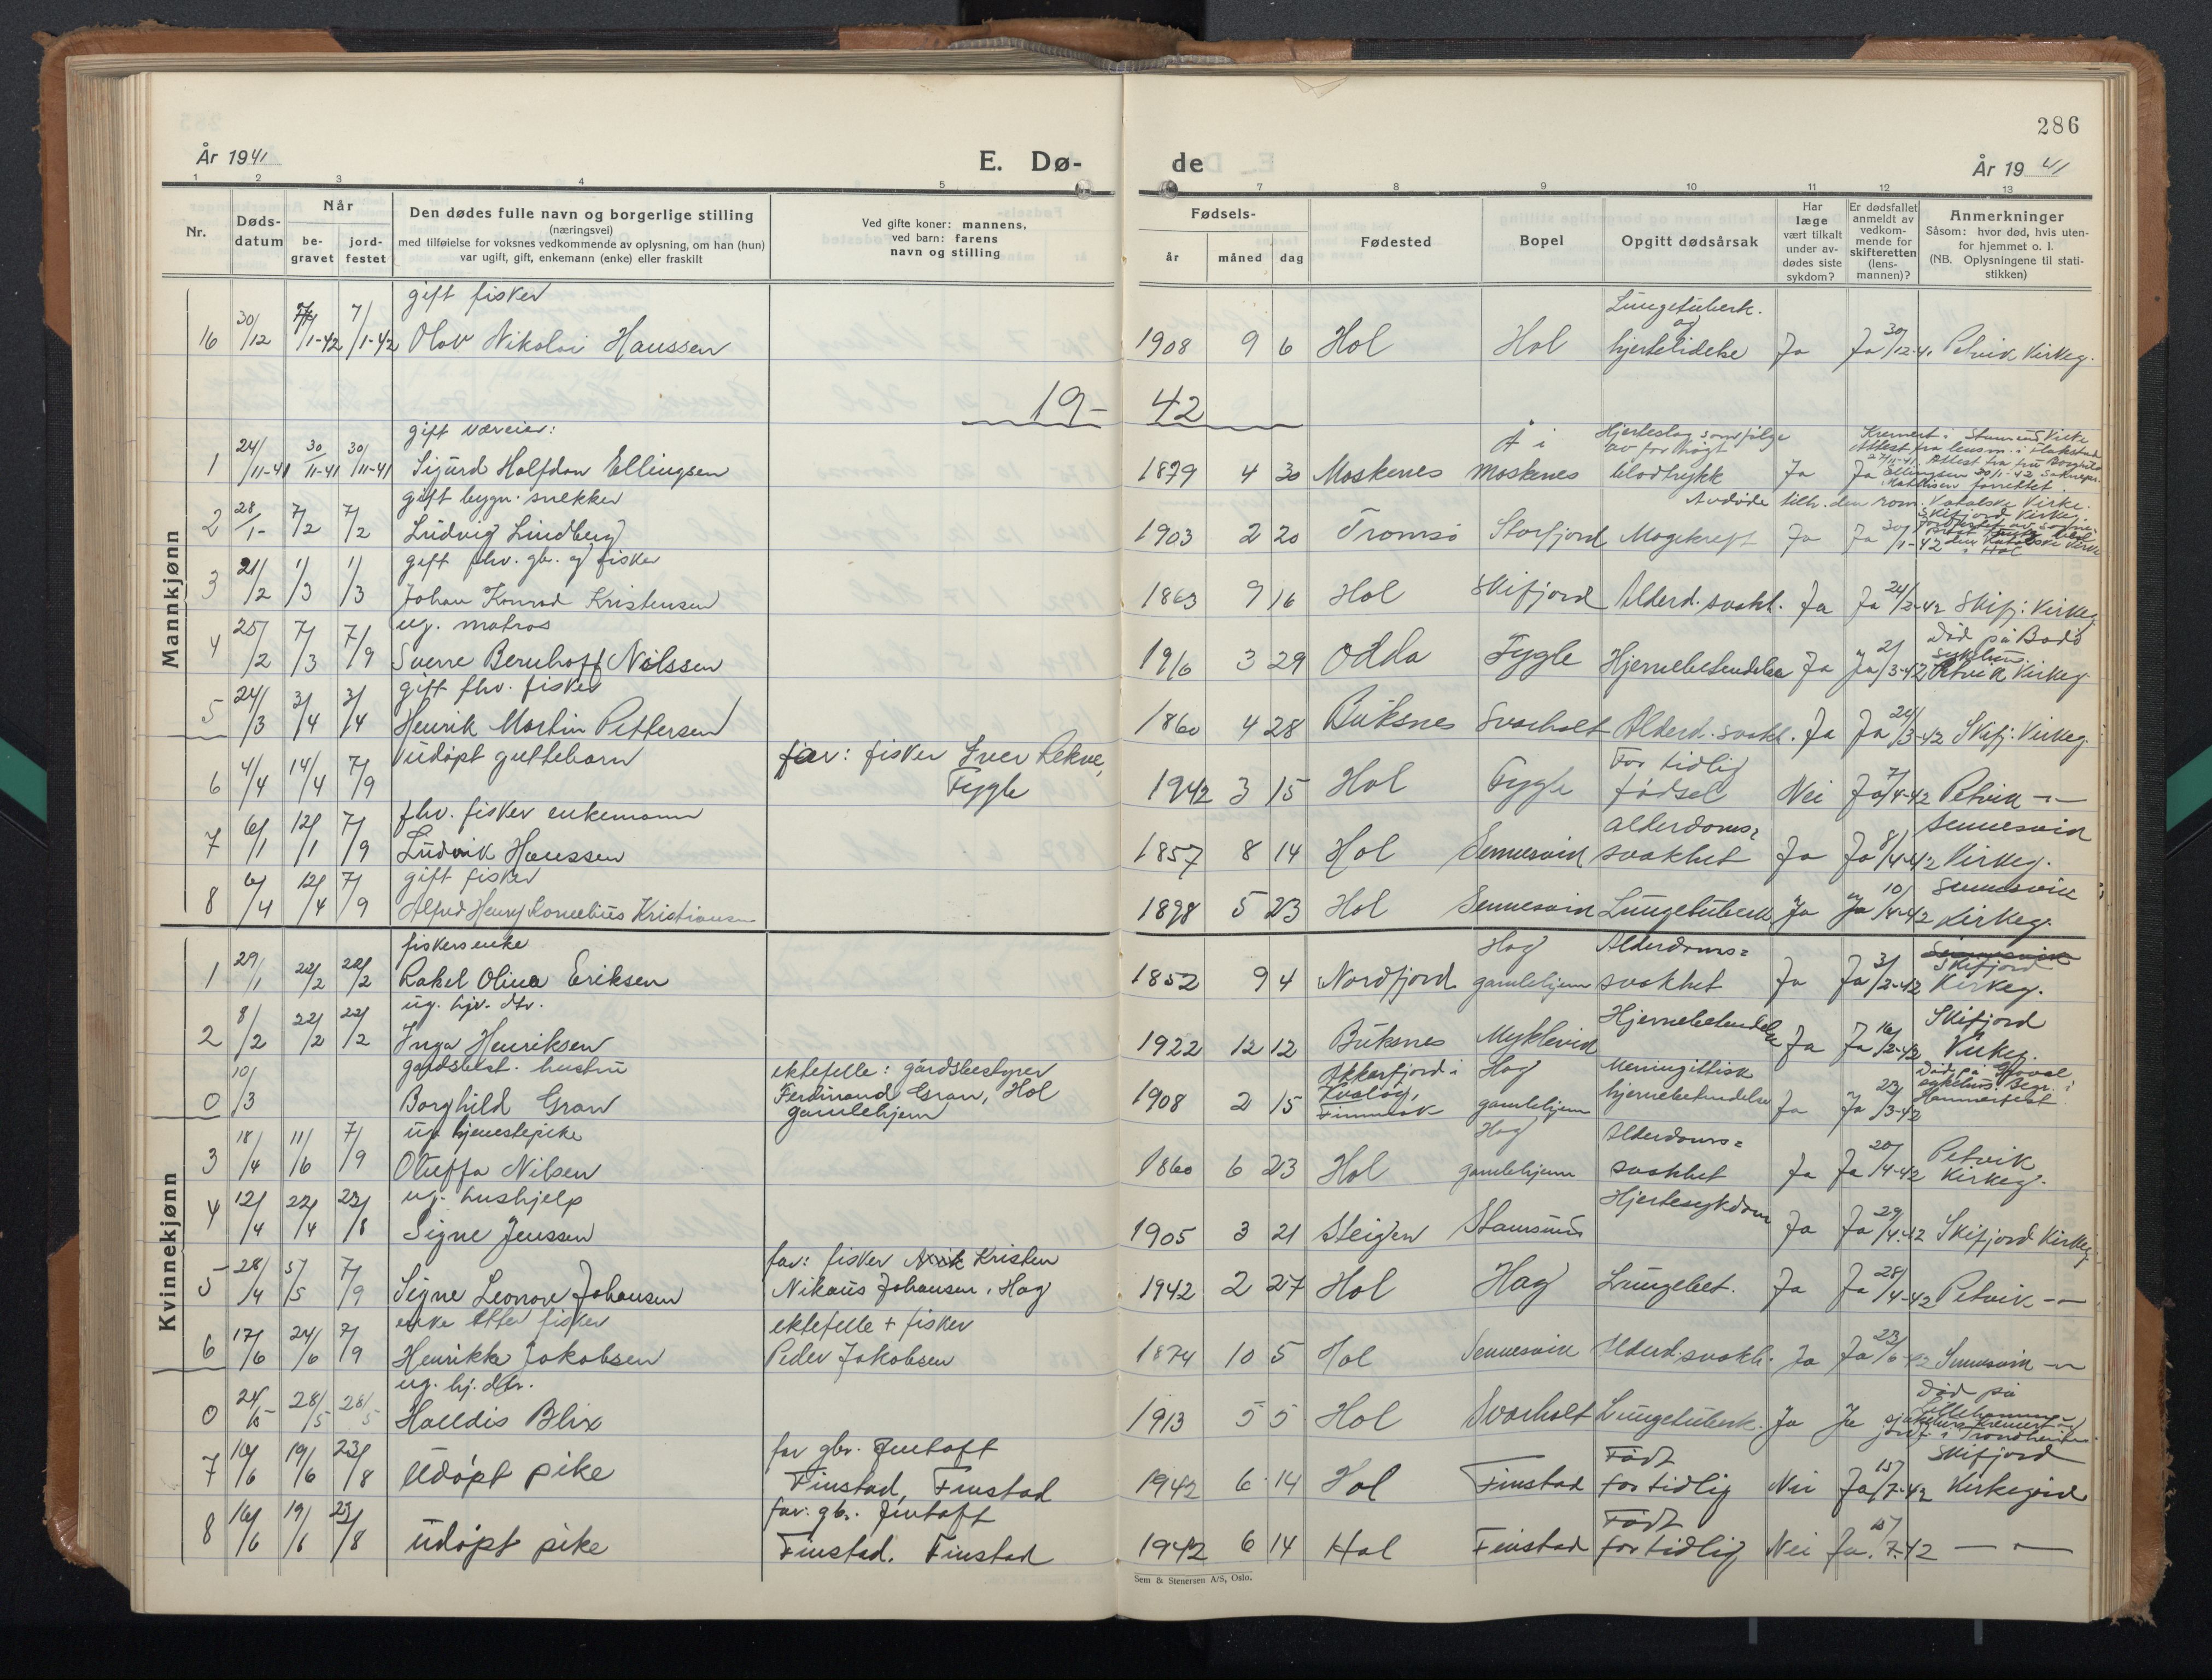 286
År 1941
E. Dø-
de
År 1941
1 2 3 4 5 7 8 9 10 11 12 13
Nr.
Døds-
datum
Når
be-
gravet
jord-
festet
Den dødes fulle navn og borgerlige stilling
(næringsvei)
med tilføielse for voksnes vedkommende av oplysning, om han (hun)
var ugift, gift, enkemann (enke) eller fraskilt
Ved gifte koner: mannens,
ved barn: farens
navn og stilling
Fødsels-
år måned dag
Fødested
Bopel
Opgitt dødsårsak
Har
læge
vært tilkalt
under av-
dødes siste
sykdom?
Er dødsfallet
anmeldt av
vedkom-
mende for
skifteretten
(lens-
mannen)?
Anmerkninger
Såsom: hvor død, hvis uten-
for hjemmet o. l.
(NB. Oplysningene til stati-
stikken)
gift fisker
16 30/12 7/1-42 7/1-42 Olav Nikolai Hanssen
1908 9 6 Hol Hol Lungetuberk. og hjertelidelse Ja Ja 30/12-41 Petvik kirkeg.
19- 42
Mannkjønn
gift væreier:
1 24/11-41 30/11-41 30/11-41 Sigurd Halfdan Ellingsen
1879 4 30 Moskenes Å i Moskenes Hjerteslag som følge av for høgt blodtrykk Ja Ja Kremert i Stamsund kirke
gift bygn. snekker
2 28/1- 7/2 7/2 Ludvig Lindberg
1903 2 20 Tromsø Storfjord Magekreft Ja Ja 30/1-42
Avdøde tilh. den rom. katolske kirke.
gift fhv. gb. og fisker
3 21/2 1/3 1/3 Johan Konrad Kristensen
1863 9 16 Hol Skifjord Alderd. svakh. Ja Ja 24/2-42 Skifj. kirkeg
ug. matros
4 25/2 7/3 7/9 Sverre Bernhoff Nilssen
1916 3 29 Odda Fygle Hjernebetendelse Ja Ja 2/3-42 Død på Bodø sykehus. Petvik kirkeg
gift fhv. fisker
5 24/3 3/4 3/4 Henrik Martin Pettersen
1860 4 28 Buksnes Svarholt Alderd. svakh. Ja Ja 24/3-42 Skifj. kirkeg.
udøpt guttebarn
6 4/4 14/4 7/9 far: fisker Iver Rekve, Fygle
1942 3 15 Hol Fygle For tidlig fødsel Nei Ja 7/4-42 Petvik -"-
fhv. fisker enkemann
7 6/1 12/1 7/9 Ludvik Hanssen
1857 8 14 Hol Sennesvik Alderdoms= svakhet Ja Ja 8/4-42 Sennesvik kirkeg.
gift fisker
8 6/4 12/4 7/9 Alfred Henry Kornelius Kristiansen
1898 5 23 Hol Sennesvik Lungetuberk Ja Ja 10/4-42 Sennesvik kirkeg.
Kvinnekjønn
fiskers enke
1 29/1 22/2 22/2 Rakel Olina Eriksen
1852 9 4 Nordfjord Hag gamlehjem Alderdoms= svakhet Ja Ja 3/2-42 Skifjord kirkeg.
ug. hjv. dtr.
2 8/2 22/2 22/2 Inga Henriksen
1922 12 12 Buksnes Myklevik Hjernebetendelse Ja Ja 16/2-42 Skifjord kirkeg.
gårdsbest. hustru
0 10/3 Borghild Gran ektefelle: gårdsbestyrer Ferdinand Gran, Hol gamlehjem
1908 2 15 Akkarfjord i Kvaløy, Finnmark Hag gamlehjem Meningittisk hjernebetendelse Ja Ja 23/3-42 Hammerfest
ug. tjenestepike
3 18/4 11/6 7/9 Oluffa Nilsen
1860 6 23 Hol Hag gamlehjem Alderdoms= svakhet Ja Ja 20/4-42 Petvik kirkeg.
ug. hushjelp
4 12/4 22/4 23/8 Signe Jenssen
1905 3 21 Steigen Stamsund Hjertesykdom Ja Ja 29/4-42 Skifjord kirkeg.
5 28/4 5/5 7/9 Signe Leonore Johansen far: fisker Kristen Nikaus Johansen, Hag
1942 2 27 Hol Hag Lungebet. Ja Ja 28/4-42 Petvik -"-
enke etter fisker
6 17/6 24/6 7/9 Henrikke Jakobsen ektefelle + fisker Peder Jakobsen
1874 10 5 Hol Sennesvik Alderd. svakh. Ja Ja 23/6-42 Sennesvik -"-
ug. hj. dtr.
0 24/5 28/5 28/5 Halldis Blix
1913 5 5 Hol Svarholt Lungetuberk. Ja Ja Død på Lillehammer sjukehus Kremert og jordf. i Trondheim
7 16/6 19/6 23/8 Udøpt pike far gbr. Jentoft Finstad, Finstad
1942 6 14 Hol Finstad Født for tidlig Nei Ja 15/7-42 Skifjord Kirkegård
8 16/6 19/6 23/8 Udøpt pike far: gbr. Jentoft Finstad, Finstad
1942 6 14 Hol Finstad Født for tidlig Nei Ja 15/7-42 -"-
Sem & Stenersen A/S, Oslo.